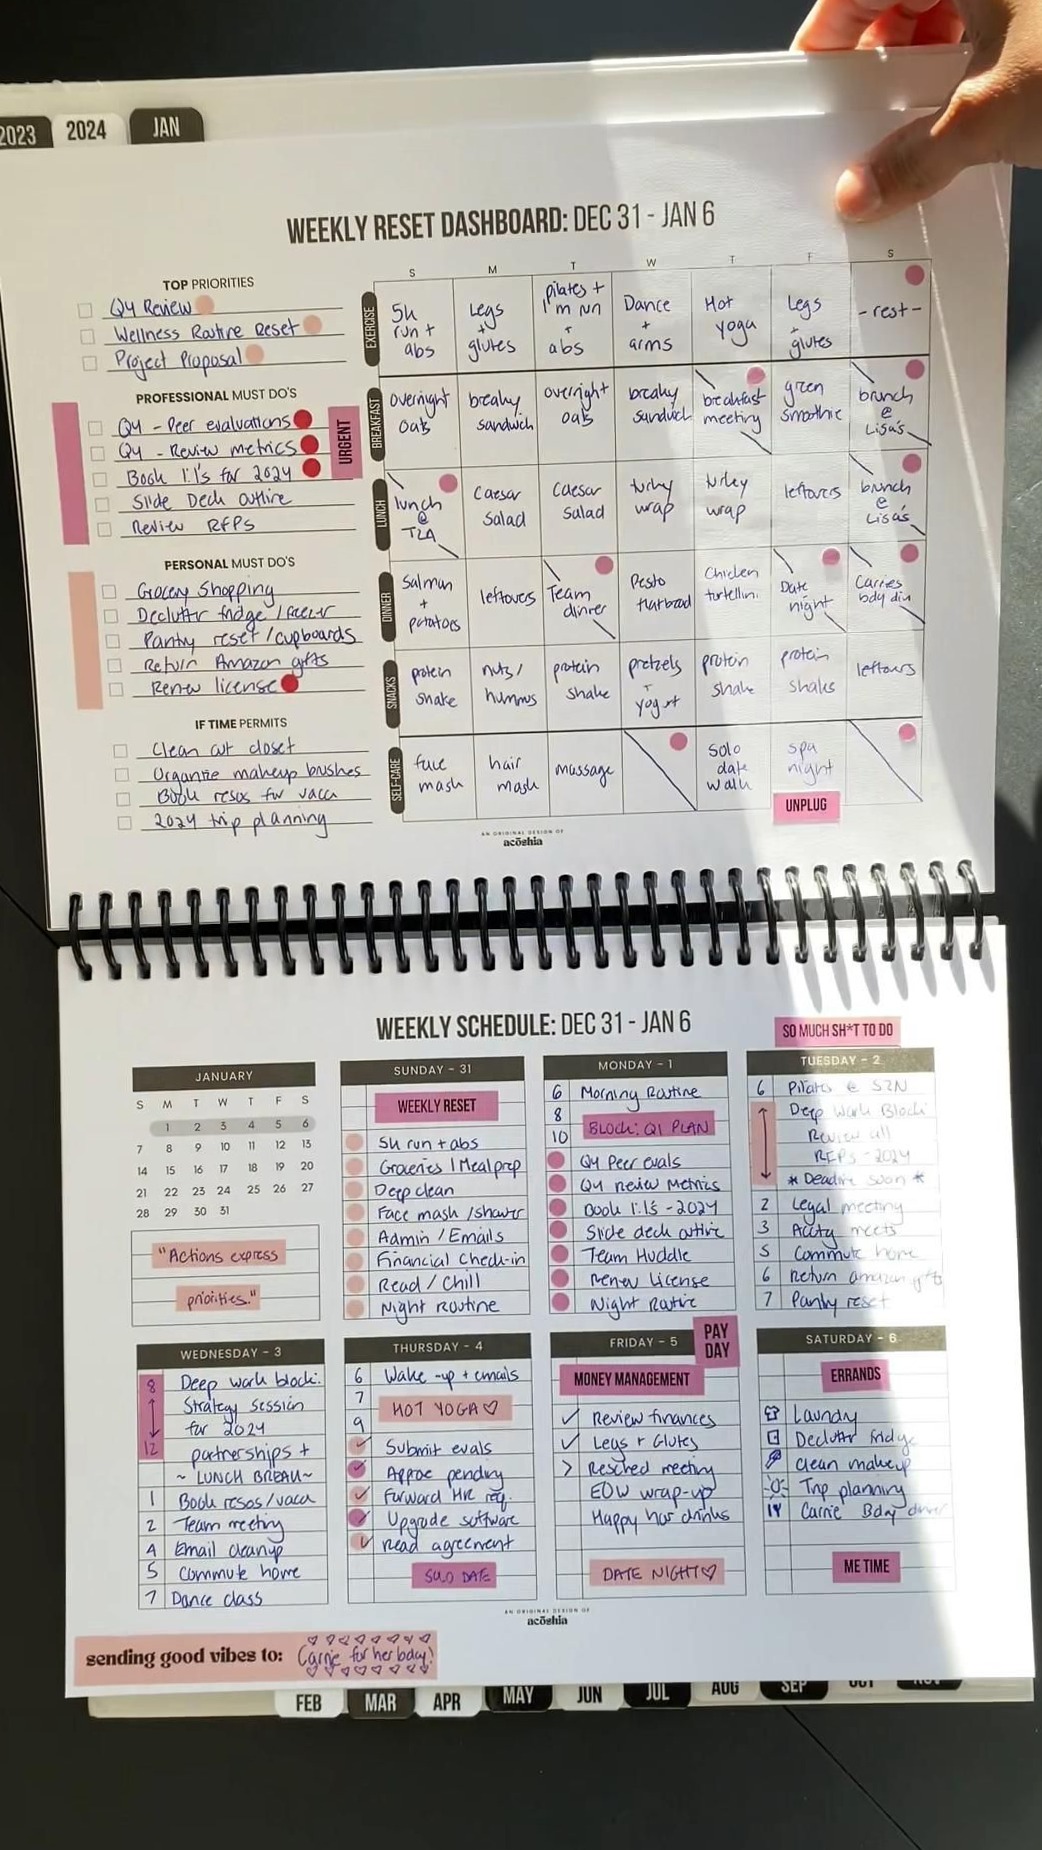 2023
2024
JAN
WEEKLY RESET DASHBOARD: DEC 31 - JAN 6
TOP PRIORITIES
Q4 Review
Wellness Routine Reset
Project Proposal
PROFESSIONAL MUST DO'S
Q4 - Peer evaluations
Q4 - Review metrics
Book 1:1's for 2024
Slide Deck outline
Review RFPS
URGENT
PERSONAL MUST DO'S
Grocery Shopping
Declutter fridge / freezer
Pantry reset / cupboards
Return Amazon gifts
Renew license
IF TIME PERMITS
Clean out closet
Organize makeup brushes
Book resos for vaca
2024 trip planning
S M T W T F S
EXERCISE
5k run + abs
Legs + glutes
pilates + 1m run + abs
Dance + arms
Hot yoga
Legs + glutes
- rest -
BREAKFAST
overnight oats
breaky sandwich
overnight oats
breaky sandwich
breakfast meeting
green smoothie
brunch @ Lisa's
LUNCH
lunch @
Caesar salad
Caesar salad
wrap
wrap
leftovers
brunch @ Lisa's
DINNER
Salmon + potatoes
leftovers
Team dinner
Pesto flatbread
Chicken tortellini
Date night
Carries bday din
SNACKS
protein shake
nuts / hummus
protein shake
pretzels + yogurt
protein shake
protein shake
leftovers
SELF-CARE
face mask
hair mask
massage
solo date walk
spa night
UNPLUG
AN ORIGINAL DESIGN OF
acōshia
WEEKLY SCHEDULE: DEC 31 - JAN 6
SO MUCH SH*T TO DO
JANUARY
S M T W T F S
1 2 3 4 5 6
7 8 9 10 11 12 13
14 15 16 17 18 19 20
21 22 23 24 25 26 27
28 29 30 31
"Actions express
priorities."
SUNDAY - 31
WEEKLY RESET
5k run + abs
Groceries / Meal prep
Deep clean
Face mask / shower
Admin / Emails
Financial check-in
Read / Chill
Night Routine
MONDAY - 1
6 Morning Routine
8
10 BLOCK: Q1 PLAN
Q4 Peer evals
Q4 review Metrics
Book 1:1's - 2024
Slide deck outline
Team Huddle
Renew License
Night Routine
TUESDAY - 2
6 Pilates @ SZN
Deep Work Block:
Review all
RFPS - 2024
* Deadline soon *
2 Legal meeting
3 meets
5 Commute home
6 Return amazon gifts
7 Pantry reset
WEDNESDAY - 3
8 Deep work block:
Strategy session
for 2024
12 partnerships +
~ LUNCH BREAK ~
1 Book resos/vaca
2 Team meeting
4 Email cleanup
5 Commute home
7 Dance class
THURSDAY - 4
6 Wake-up + emails
7
HOT YOGA ♡
9
Submit evals
Approve pending
Forward HR req.
Upgrade software
Read agreement
SOLO DATE
FRIDAY - 5
PAY DAY
MONEY MANAGEMENT
✓ Review finances
✓ Legs + Glutes
> Resched meeting
EOW wrap-up
Happy hour drinks
DATE NIGHT ♡
SATURDAY - 6
ERRANDS
Laundry
Declutter fridge
clean makeup
Trip planning
Carrie Bday dinner
ME TIME
AN ORIGINAL DESIGN OF
acōshia
sending good vibes to: Carrie for her bday!
FEB
MAR
APR
MAY
JUN
JUL
AUG
SEP
OCT
NOV